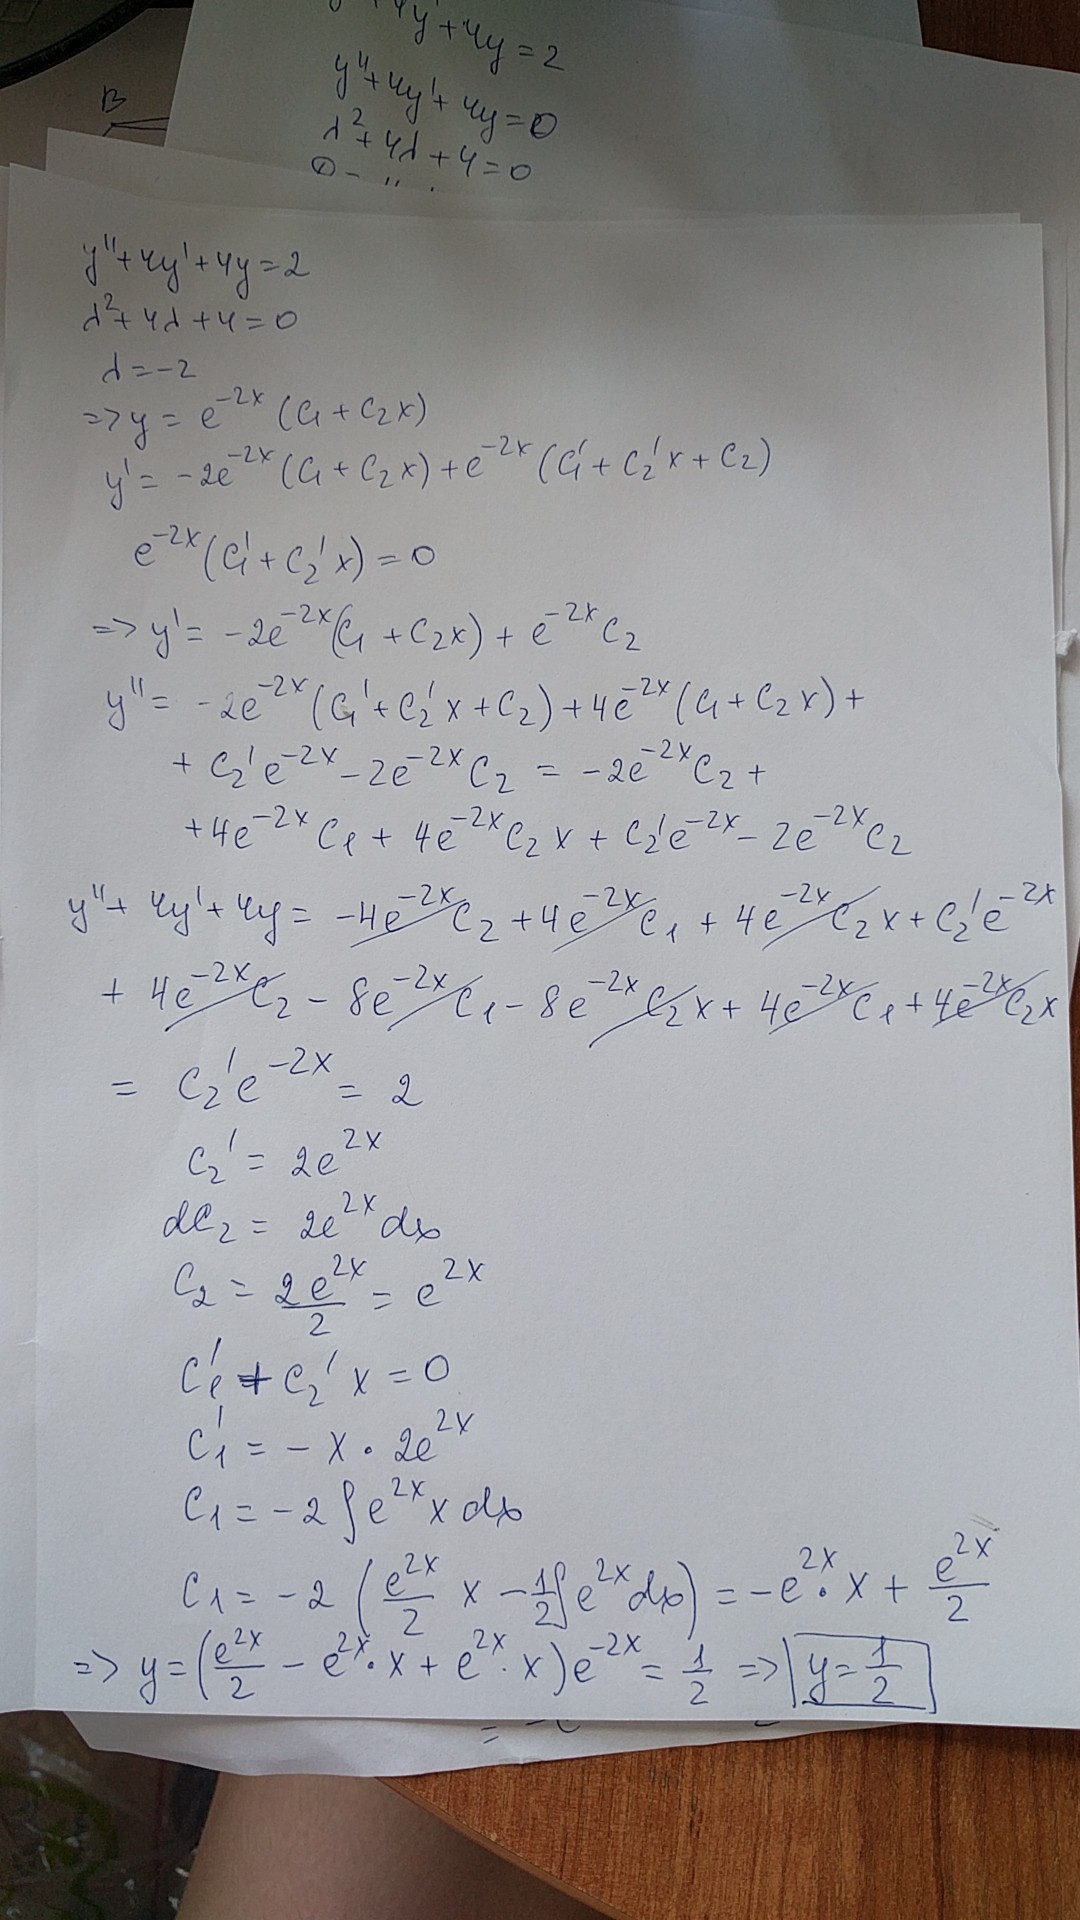 y' + 4y = 2
y'' + 4y' + 4y = 0
λ² + 4λ + 4 = 0
B
y'' + 4y' + 4y = 2
λ² + 4λ + 4 = 0
λ = -2
=> y = e^{-2x} (C₁ + C₂x)
y' = -2e^{-2x} (C₁ + C₂x) + e^{-2x} (C₁' + C₂'x + C₂)
e^{-2x} (C₁' + C₂'x) = 0
=> y' = -2e^{-2x} (C₁ + C₂x) + e^{-2x} C₂
y'' = -2e^{-2x} (C₁' + C₂'x + C₂) + 4e^{-2x} (C₁ + C₂x) +
+ C₂'e^{-2x} - 2e^{-2x} C₂ = -2e^{-2x} C₂ +
+ 4e^{-2x} C₁ + 4e^{-2x} C₂x + C₂'e^{-2x} - 2e^{-2x} C₂
y'' + 4y' + 4y = -4e^{-2x} C₂ + 4e^{-2x} C₁ + 4e^{-2x} C₂x + C₂'e^{-2x}
+ 4e^{-2x} C₂ - 8e^{-2x} C₁ - 8e^{-2x} C₂x + 4e^{-2x} C₁ + 4e^{-2x} C₂x
= C₂'e^{-2x} = 2
C₂' = 2e^{2x}
dC₂ = 2e^{2x} dx
C₂ = 2e^{2x}/2 = e^{2x}
C₁' + C₂'x = 0
C₁' = -x · 2e^{2x}
C₁ = -2 ∫e^{2x} x dx
C₁ = -2 (e^{2x}/2 x - 1/2 ∫e^{2x} dx) = -e^{2x} · x + e^{2x}/2
=> y = (e^{2x}/2 - e^{2x} · x + e^{2x} · x) e^{-2x} = 1/2 => y = 1/2